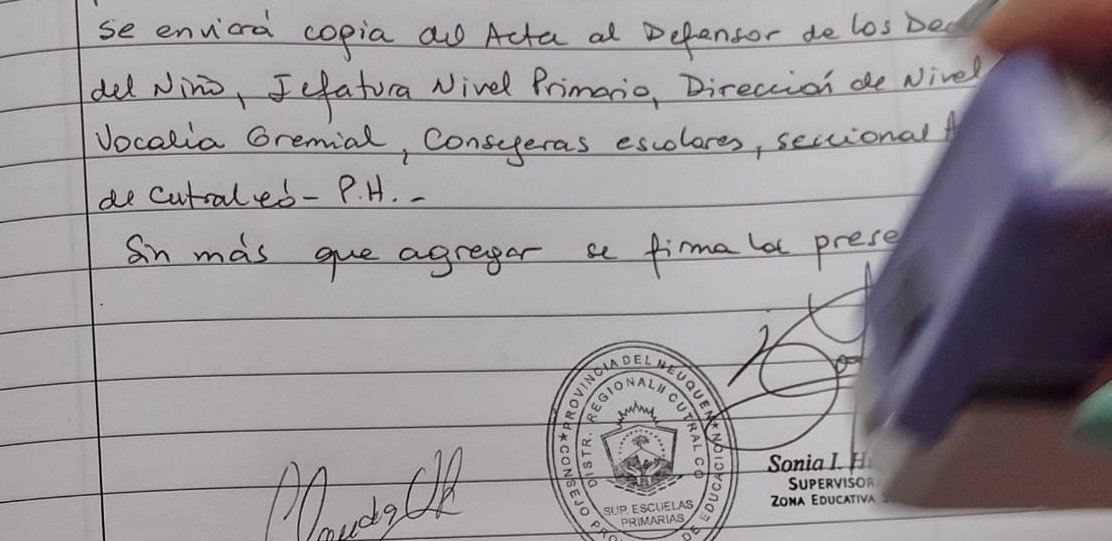 se enviará copia del Acta al Defensor de los
del Niño, Jefatura Nivel Primario, Dirección de Nivel
Vocalía Gremial, Consejeras escolares, seccional
de Cutral có - P.H. -
Sin más que agregar se firma la prese
CONSEJO PRO DE EDUCACION ★ PROVINCIA DEL NEUQUEN ★
DISTR. REGIONAL II CUTRAL CO
SUP. ESCUELAS
PRIMARIAS
Sonia I. H
SUPERVISOR
ZONA EDUCATIVA